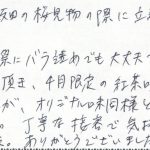 飯田の桜見物の際に立
際にバラ詰めでも大丈夫
頂き、4月限定の紅茶
が、オリジナル同様と
の丁寧な接客で気お
ありがとうございました